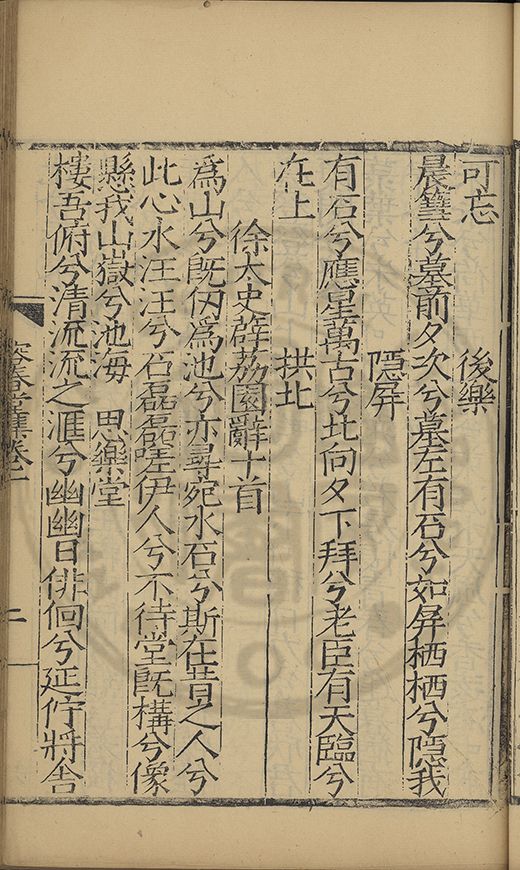 可忘　　後樂
晨簪兮墓前夕次兮墓左有石兮如屏栖栖兮隱我
隱屏
有石兮應星萬古兮北向夕下拜兮老臣有天臨兮
在上　　拱北
徐太史薜荔園辭十首
爲山兮既仞爲池兮亦尋宛水石兮斯在昔之人兮
此心水汪汪兮石磊磊嗟伊人兮不待堂既構兮像
懸我山嶽兮池海　思樂堂
樓吾俯兮清流流之滙兮幽幽日俳佪兮延佇將舍
容春堂集卷二
二